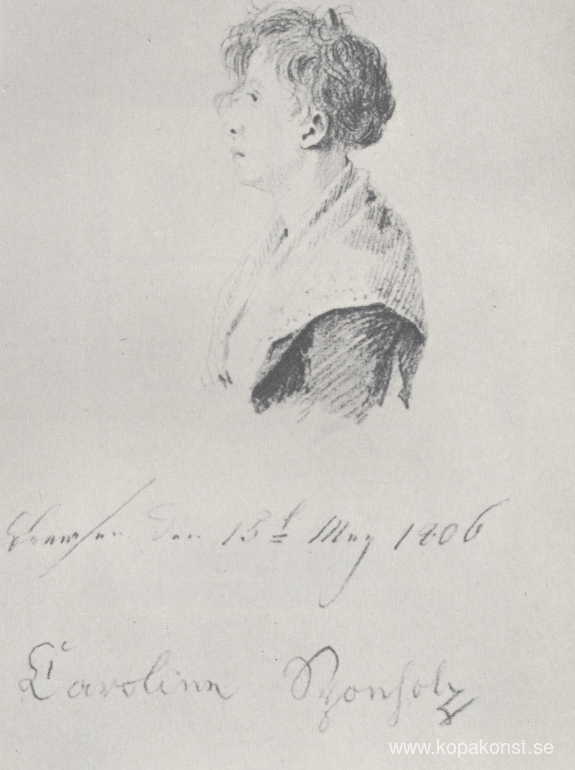 Breesen den May 1806
Caroline Sponholz
www.kopakonst.se